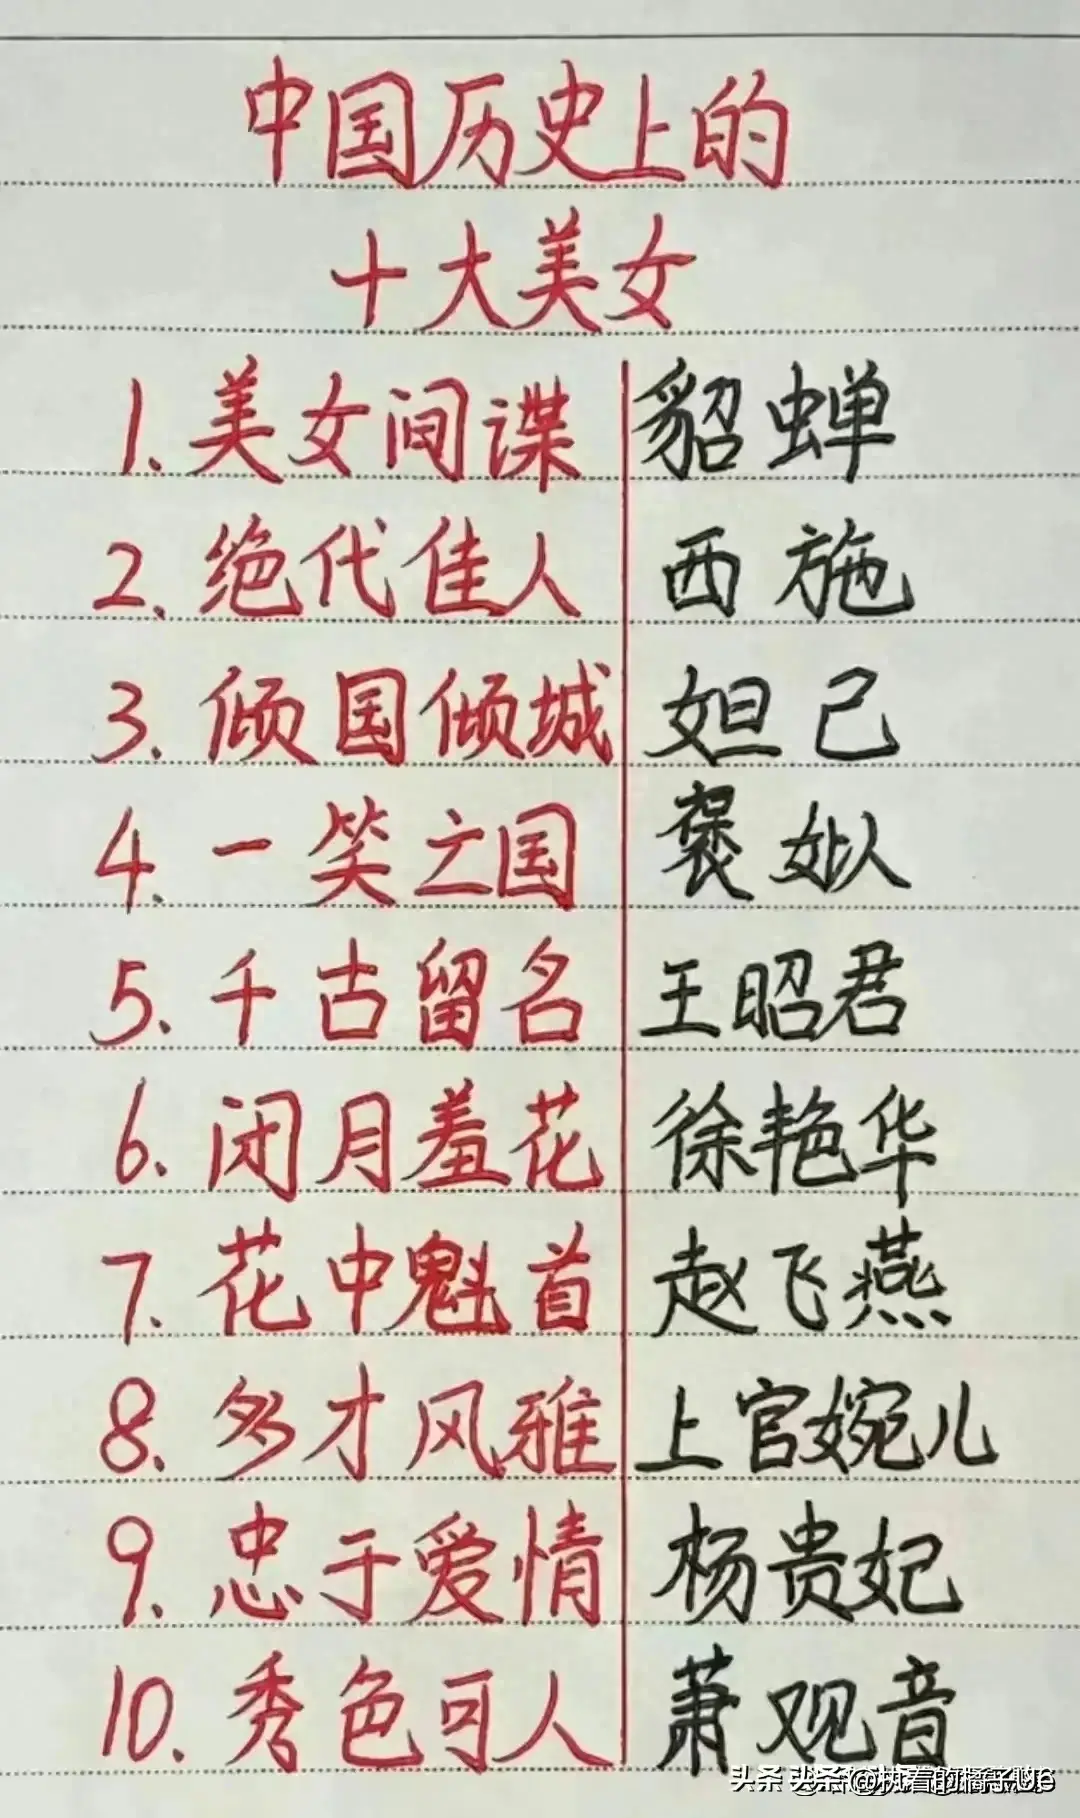 中国历史上的
十大美女
1. 美女间谍 貂蝉
2. 绝代佳人 西施
3. 倾国倾城 妲己
4. 一笑亡国 褒姒
5. 千古留名 王昭君
6. 闭月羞花 徐艳华
7. 花中魁首 赵飞燕
8. 多才风雅 上官婉儿
9. 忠于爱情 杨贵妃
10. 秀色可人 萧观音
头条 头条